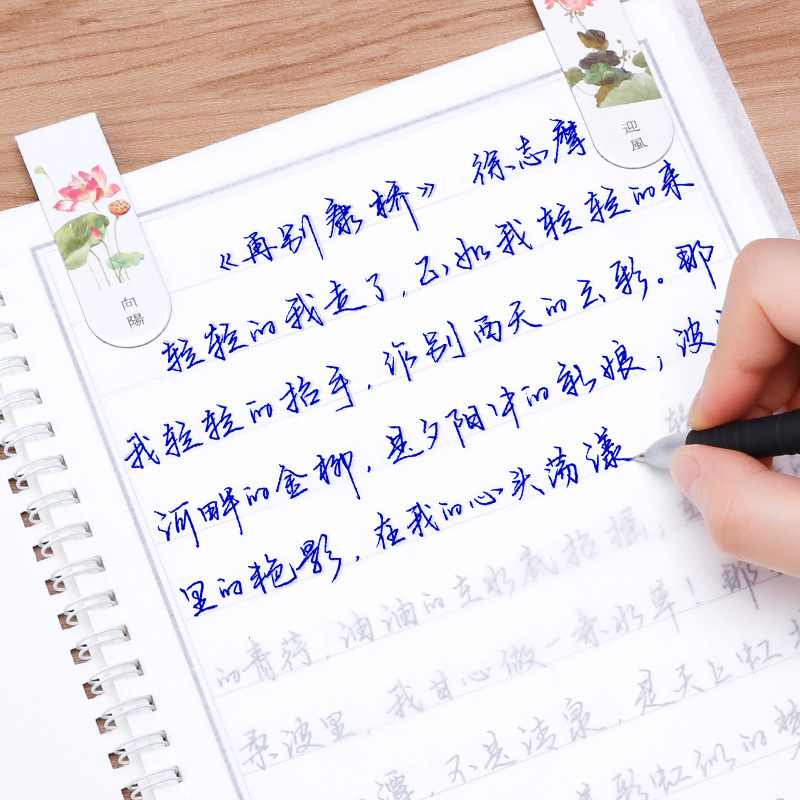 迎風
向陽
《再别康桥》 徐志摩
轻轻的我走了,正如我轻轻的来
我轻轻的招手,作别西天的云彩。那
河畔的金柳,是夕阳中的新娘;波
里的艳影,在我的心头荡漾
的青荇,油油的在水底招摇,
柔波里,我甘心做一条水草!那
潭,不是清泉,是天上虹
彩虹似的梦